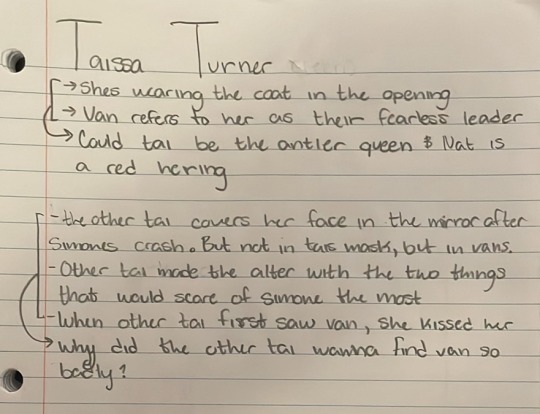 Taissa Turner
→ Shes wearing the coat in the opening
→ Van refers to her as their fearless leader
→ Could tai be the antler queen & Nat is
a red hering
- the other tai covers her face in the mirror after
Simones crash. But not in tais mask, but in vans.
- Other tai made the alter with the two things
that would scare of simone the most
- When other tai first saw van, she kissed her
→ why did the other tai wanna find van so
badly?